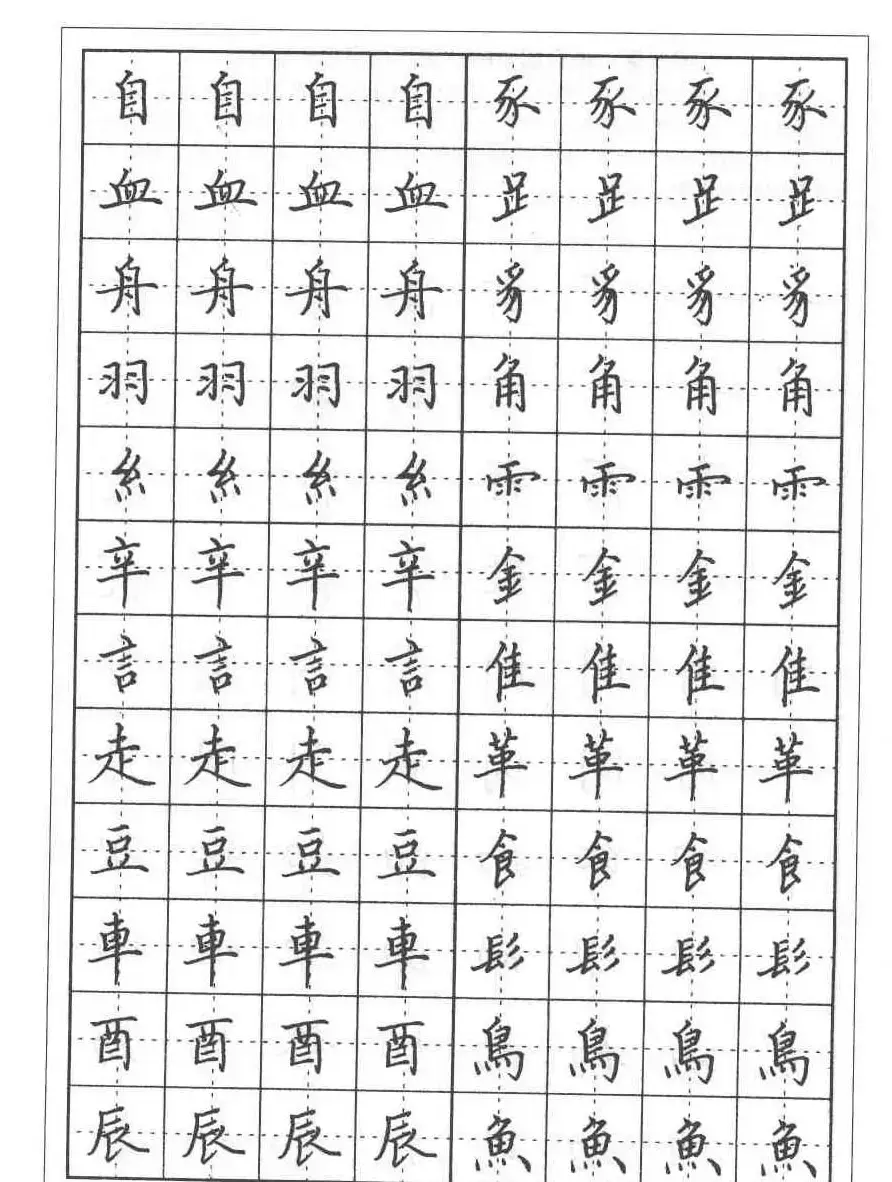 自 自 自 自 豕 豕 豕 豕
血 血 血 血 𧾷 𧾷 𧾷 𧾷
舟 舟 舟 舟 豸 豸 豸 豸
羽 羽 羽 羽 角 角 角 角
糹 糹 糹 糹 雨 雨 雨 雨
辛 辛 辛 辛 金 金 金 金
言 言 言 言 隹 隹 隹 隹
走 走 走 走 革 革 革 革
豆 豆 豆 豆 食 食 食 食
車 車 車 車 髟 髟 髟 髟
酉 酉 酉 酉 鳥 鳥 鳥 鳥
辰 辰 辰 辰 魚 魚 魚 魚